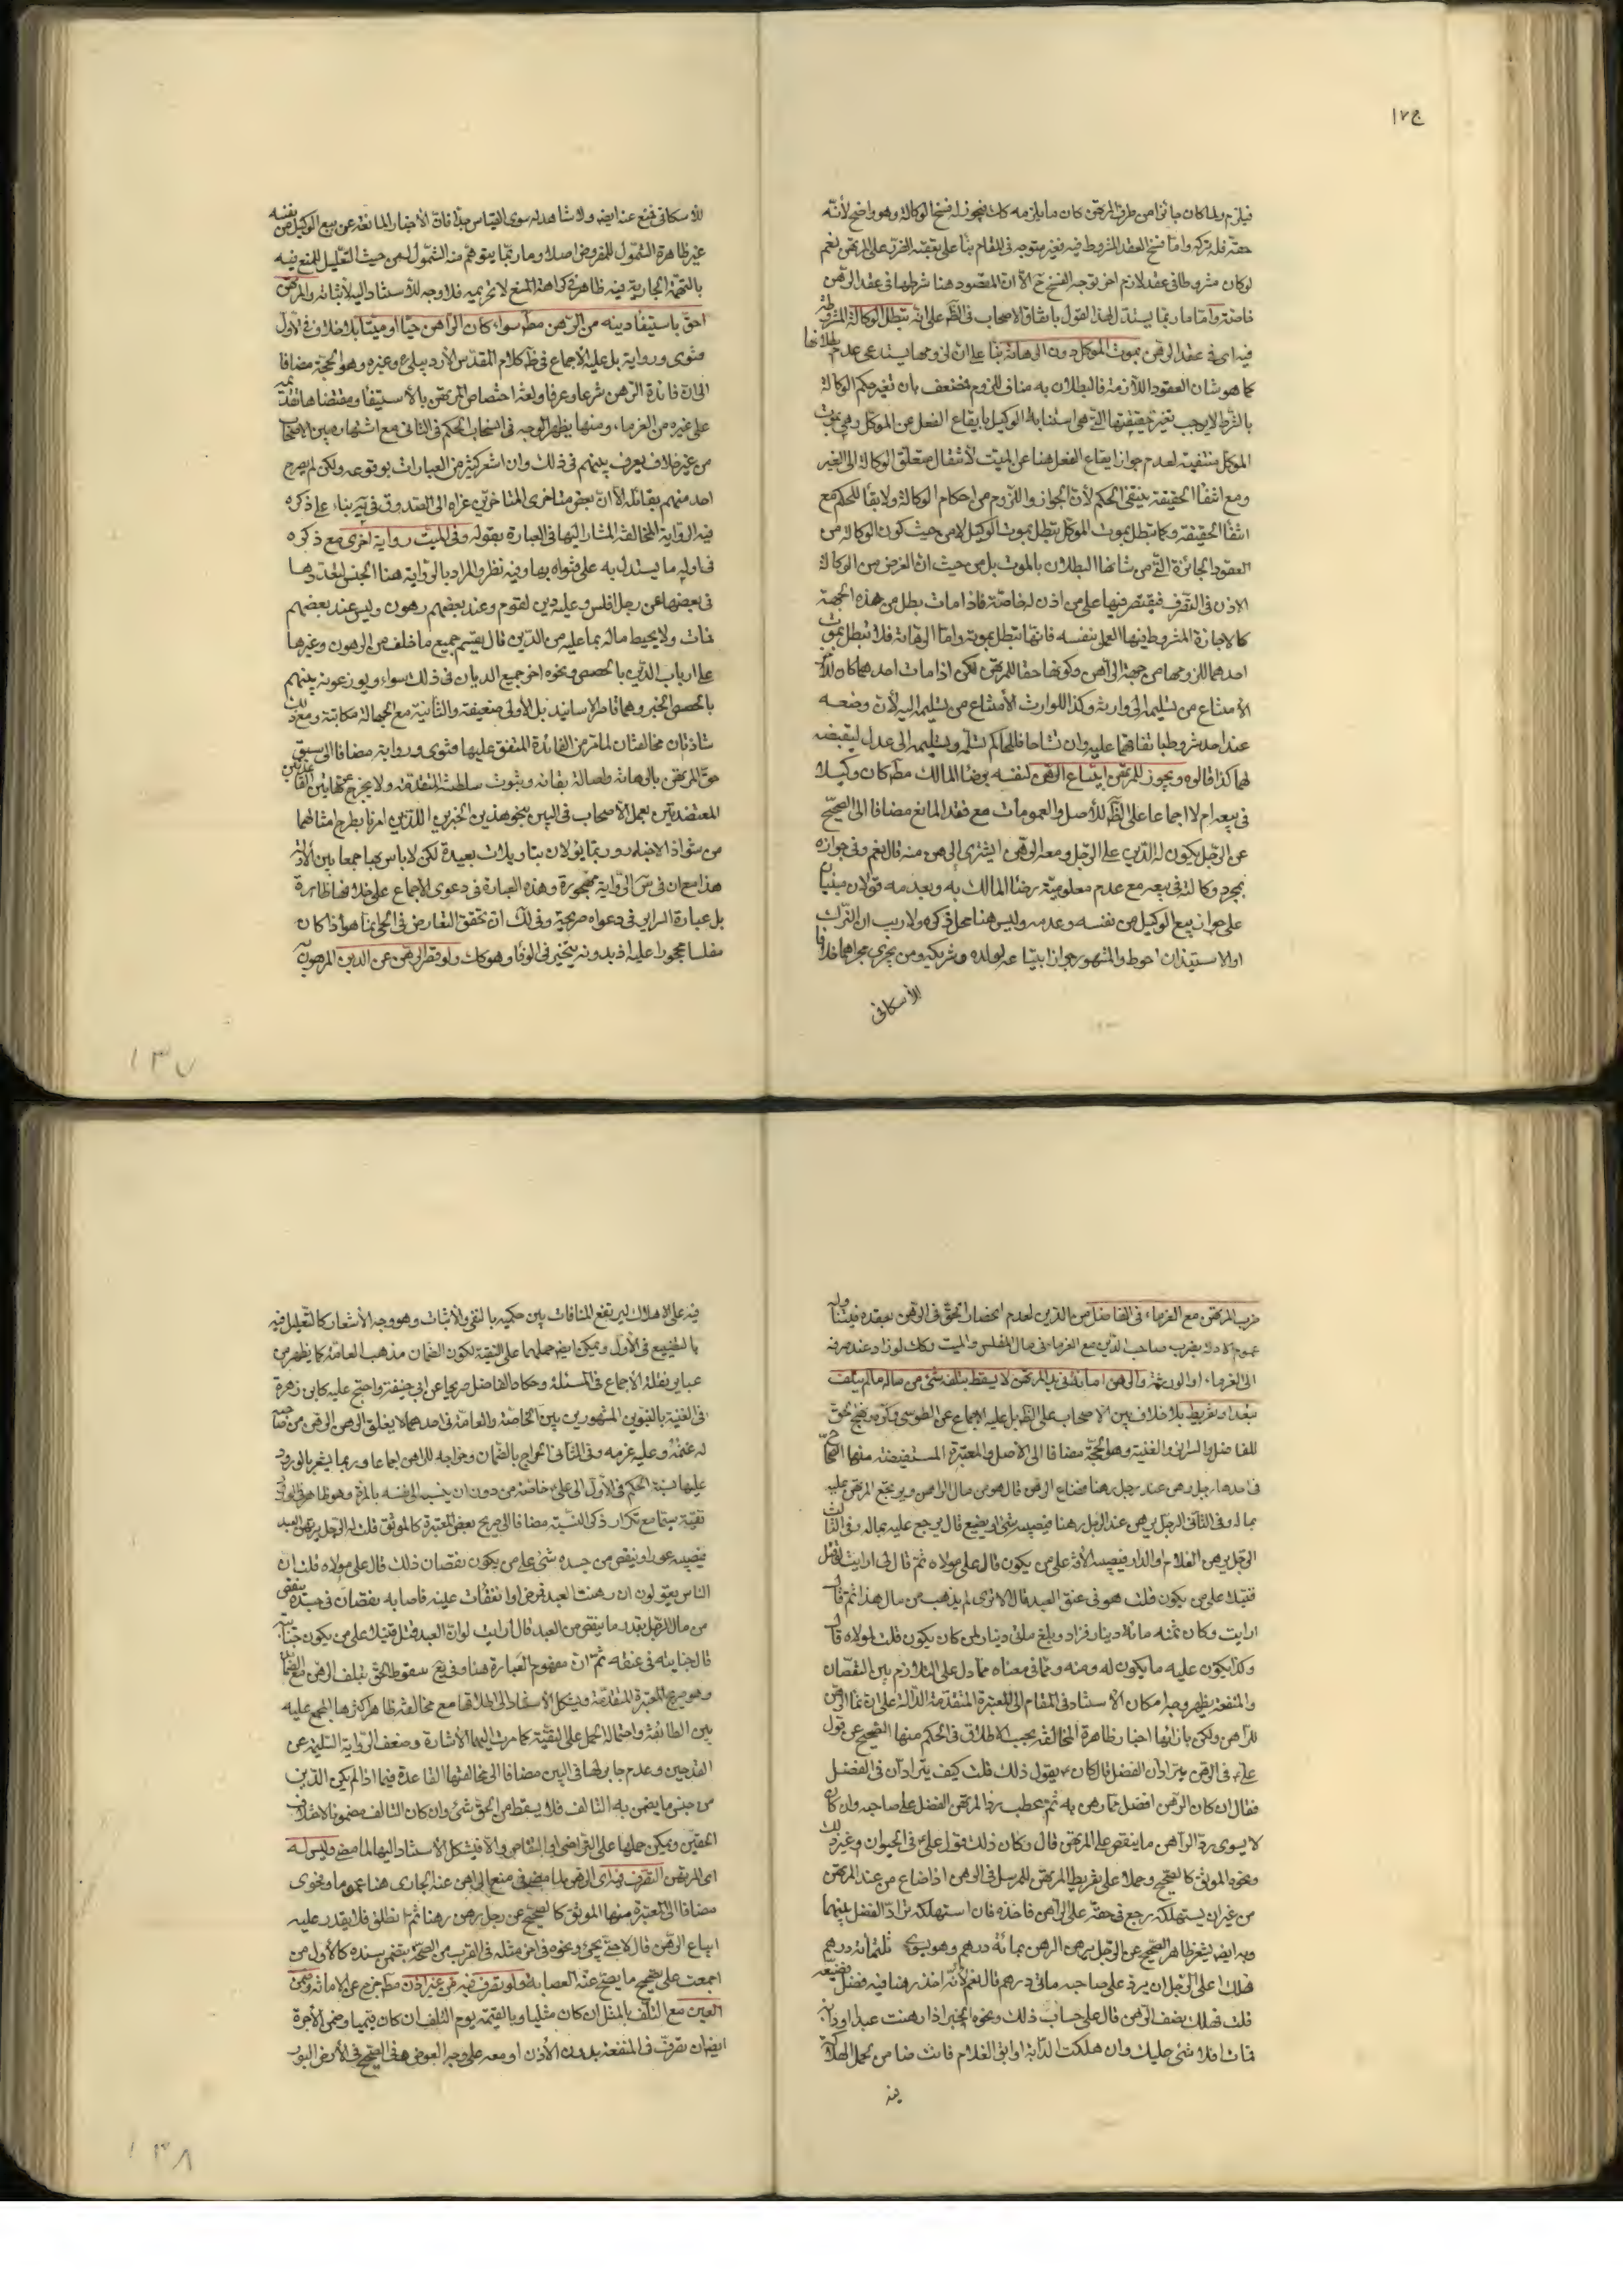 فيلزم ولما كان جائزا من طرف المرتهن كان ما يلزمه كك فيجوز له فسخ الوكالة وهو واضح لأنّه
حقه فله تركه وامّا فسخ العقد المشروط فيه فغير متوجه في المقام بناء على توقفه الضرر على المرتهن نعم
لو كان مشروطا في عقد لازم اخر توجه الفسخ ح الّا انّ المقصود هنا شرطها في عقد الرهن
خاصة وامّا ما ربما يستدل لهذا القول باتفاق الاصحاب في الظ على انّه تبطل الوكالة المشروطة
فيه اي في عقد الرهن بموت الموكل دون الرهانة بناء على ان لزومها يستدعي عدم بطلانها
كما هو شان العقود اللازمة فالبطلان به مناف للزوم فضعف بان تغير حكم الوكالة
بالشرط لا يوجب تغير حقيقتها التّي هي استنابة الوكيل بايقاع الفعل من الموكل وهي بموت
الموكل منتفية لعدم جواز ايقاع الفعل هنا عن الميت لانتقال متعلق الوكالة الى الغير
ومع انتفاء الحقيقة ينتفي الحكم لأنّ الجواز واللزوم من احكام الوكالة ولا بقاء للحكم مع
انتفاء الحقيقة وكما تبطل بموت الموكل تبطل بموت الوكيل لا من حيث كون الوكالة من
العقود الجائزة التّي من شانها البطلان بالموت بل من حيث انّ الغرض من الوكالة
الاذن في التصرف فيقتصر فيها على من اذن له خاصّة فاذا مات بطل من هذه الجهة
كالاجارة المشروط فيها العمل بنفسه فانّها تبطل بموته وامّا الرهانة فلا تبطل بموت
احدهما للزومها من جهة الراهن وكونها حقا للمرتهن لكن اذا مات احدهما كان للاخر
الأمتناع من تسليمه الى وارثه وكذا للوارث الأمتناع من تسليمه اليه لأن وضعه
عند احد مشروط باتفاقهما عليه وان تشاحا فللحاكم تسلّمه وتسليمه الى عدل ليقبضه
لهما كذا قالوه ويجوز للمرتهن ابتياع الرهن لنفسه برضا المالك مط كان وكيلا
في بيعه ام لا اجماعا على الظ للأصل والعمومات مع فقد المانع مضافا الى الصحيح
عن الرجل يكون له الدّين على الرّجل ومعه الرهن ايشتري الرهن منه قال نعم وفي جوازه
بمجرد وكالته في بيعه مع عدم معلوميّة رضا المالك به وبعدمه قولان مبنيان
على جواز بيع الوكيل من نفسه وعدمه وليس هنا محل ذكره ولا ريب ان الترك
اولا استيذان احوط والمشهور جواز ابتياعه لولده وشريكه ومن يجري مجراهما خلافا
للأسكافي
للأسكافي فمنع عنه ايضا ولا شاهد له سوى القياس جدّا فانّ الأخبار المانعة عن بيع الوكيل من نفسه
غير ظاهرة الشمول للمفروض اصلا وما ربّما يتوهم منه الشمول لهن حيث التّعليل للمنع فيه
بالتهمة الجارية فيه ظاهر في كراهة المنع لا تحريمه فلا وجه للأستناد اليه لأثباته والمرتهن
احق باستيفاء دينه من الرّهن مط سواء كان الراهن حيا او ميتا بلا خلاف في الأول
فتوى ورواية بل عليه الأجماع في ظ كلام المقدس الأردبيلي ع وغيره وهو الحجة مضافا
الى ان فائدة الرّهن شرعا وعرفا ولغة اختصاص المرتهن بالأستيفاء ومقتضاها تقدّمه
على غيره من الغرماء ومنها يظهر الوجه في انسحاب الحكم في الثاني مع اشتهاره بين الاصحاب
من غير خلاف يعرف بينهم في ذلك وان اشعر كثير من العبارات بوقوعه ولكن لم يصرح
احد منهم بقائله الا انّ بعض متاخري المتاخرين عزاه الى الصدوق في يه بناء على ذكره
فيه الرواية المخالفة المشار اليها في العبارة بقوله وفي الميّت رواية اخرى مع ذكره
في اوله ما يستدل به على فتواه بها وفيه نظر والمراد بالرواية هنا الجنس لتعددها
في بعضها عن رجل افلس وعليه دين لقوم وعند بعضهم رهون وليس عند بعضهم
فمات ولا يحيط ماله بما عليه من الدّين قال يقسّم جميع ما خلف من الرهون وغيرها
على ارباب الدّين بالحصص ونحوه اخر جميع الديان في ذلك سواء ويوزعونه بينهم
بالحصص الخبر وهما قاصر الاسانيد بل الأولى ضعيفة والثانية مع الجهالة مكاتبة ومع ذلك
شاذتان مخالفتان لما مر من القاعدة المتفق عليها فتوى ورواية مضافا الى سبق
حق المرتهن بالرهانة واصالة بقائه وثبوت سلطنته المتقدمة ولا يخرج عن هاتين القاعدتين
المعتضدتين بعمل الأصحاب في البين بنحو هذين الخبرين اللذين امرنا بطرح امثالهما
من شواذ الاخبار وربما يؤلان بتاويلات بعيدة لكن لا باس بها جمعا بين الأدلة
هذا مع ان في س الرواية مهجورة وهذه العبارة في دعوى الأجماع على خلافها ظاهرة
بل عبارة السرائر في دعواه صريحة وفي لك انّ تحقق التعارض في الحي انما هو اذا كان
مفلسا محجورا عليه اذ بدونه يتخير في الوفاء وهو كك ولو قصر الرهن عن الدين المرهون به
ضرب المرتهن مع الغرماء في الفاضل من الدين لعدم انحصار الحق في الرهن بعقده فيتناوله
عموم الادلة بضرب صاحب الدّين مع الغرماء في مال المفلس والميت وكك لو زاد عنه صرفه
الى الغرماء او الورثة والرهن امانة في يد المرتهن لا يسقط بتلفه شيء من ماله ما لم يتلف
بتعد او تفريط بلا خلاف بين الاصحاب على الظ بل عليه الاجماع عن الطوسي وكره ونهج الحق
للفاضل والسرائر والغنية وهو الحجّة مضافا الى الأصل والمعتبرة المستفيضة منها الصحاح
في احدها رجل رهن عند رجل رهنا فضاع الرهن قال هو من مال الراهن ويرتجع المرتهن عليه
بماله وفي الثاني الرجل يرهن عند الرجل رهنا فيصيبه شيء او يضيع قال يرجع عليه بماله وفي الثالث
الرجل يرهن الغلام او الدار فيصيبه الأفة على من يكون قال على مولاه ثم قال لي ارايت لو قتل
قتيلا على من يكون قلت هو في عنق العبد قال الا ترى لم يذهب من مال هذا ثم قال
ارايت لو كان ثمنه مائة دينار فزاد وبلغ مائتي دينار لمن كان يكون قلت لمولاه قال
وكذا يكون عليه ما يكون له ومنه وما في معناه مما دل على التلازم بين النقصان
والمنفعة يظهر وجه امكان الأستناد في المقام الى المعتبرة المتقدمة الدّالة على ان نماء الرهن
للراهن ولكن بازائها اخبار ظاهرة المخالفة بحسب الاطلاق في الحكم منها الصحيح عن قول
علي ع في الرهن يترادان الفضل قال كان ع يقول ذلك قلت كيف يترادان في الفضل
فقال ان كان الرّهن افضل مما رهن به ثم عطب رد المرتهن الفضل على صاحبه وان كان
لا يسوى رد الراهن ما ينقص على المرتهن قال وكان ذلك قول علي ع في الحيوان وغير ذلك
ونحوه الموثق كالصحيح وحملا على تفريط المرتهن للمرسل في الرهن اذا ضاع من عند المرتهن
من غير ان يستهلكه رجع في حقه على الراهن فاخذه فان استهلكه تراد الفضل بينهما
وبه ايضا يشعر ظاهر الصحيح عن الرجل يرهن الرهن بمائة درهم وهو يسوى ثلثمائة درهم
فهلك اعلى الرجل ان يرد على صاحبه مائتي درهم قال نعم لأنّه اخذ رهنا فيه فضل فضيّعه
قلت فهلك نصف الرهن قال على حساب ذلك ونحوه الخبر اذا رهنت عبدا او دابة
فمات فلا شيء عليك وان هلكت الدابة او ابق الغلام فانت ضامن بحمل الهلاك
فيه
فيه على الاهلاك ليرتفع المنافات بين حكميه بالنفي والأثبات وهو وجه الأشعار كالتّعليل فيه
بالتضييع في الأول ويمكن ايضا حملهما على التقية لكون الضمان مذهب العامة كما يظهر من
عبائر نقلة الأجماع في المسئلة وحكاه الفاضل صريحا عن ابي حنيفة واحتج عليه كابن زهرة
في الغنية بالنبويين المشهورين بين الخاصّة والعامة في احدهما لا يغلق الرهن الرهن من صاحبه
له غنمه وعليه غرمه وفي الثاني الخراج بالضمان وخراجه للراهن اجماعا وربما يشعر بالورود
عليها نسبة الحكم في الأول الى علي ع خاصّة من دون ان ينسبه الى نفسه بالمرة وهو ظاهر في الورود
تقيّة سيّما مع تكرار ذكر النسبة مضافا الى صريح بعض المعتبرة كالموثق قلت له الرجل يرتهن العبد
فيصيبه عور او ينقص من جسده شيء على من يكون نقصان ذلك قال على مولاه قلت ان
الناس يقولون ان رهنت العبد فمرض او انفقات عينه فاصابه نقصان في جسده ينقص
من مال الرجل بقدر ما ينقص من العبد قال ارايت لو انّ العبد قتل قتيلا على من يكون جنايته
قال جنايته في عنقه ثم ان مفهوم العبارة هنا وفي يع سقوط الحق بتلف الرهن مع الضمان
وهو صريح المعتبرة المتقدمة ويشكل الأستناد الى اطلاقها مع مخالفته ظاهر اكثرها المجمع عليه
بين الطائفة واحتماله الحمل على التقيّة كما مرت اليها الأشارة وضعف الرواية السّليمة عن
القدحين وعدم جابر لها في البين مضافا الى مخالفتها القاعدة فيما اذا لم يكن الدّين
من جنس ما يضمن به التالف فلا يسقط من الحق شيء وان كان التالف مضمونا لاختلاف
الحقين ويمكن حملها على التراضي او التقاص والا فيشكل الأستناد اليها لما مضى وليس له
اي المرتهن التصرف فيه اي الرهن لما مضى في منع الراهن عنه الجاري هنا عموما وفحوى
مضافا الى المعتبرة منها الموثق كالصحيح عن رجل رهن رهنا ثم انطلق فلا يقدر عليه
ايباع الرهن قال لا حتى يجيء ونحوه في اخر مثله في القرب من الصحة بتضمن سنده كالأول من
اجمعت على تصحيح ما يصح عنه العصابة ولو تصرف فيه من غير اذن مط خرج عن الامانة وضمن
العين مع التلف بالمثل ان كان مثليا وبالقيمة يوم التلف ان كان قيميا وضمن الأجرة
ايضا ان تصرف في المنفعة بدون الأذن او معه على وجه العوض ففي الصحيح في الأرض البور